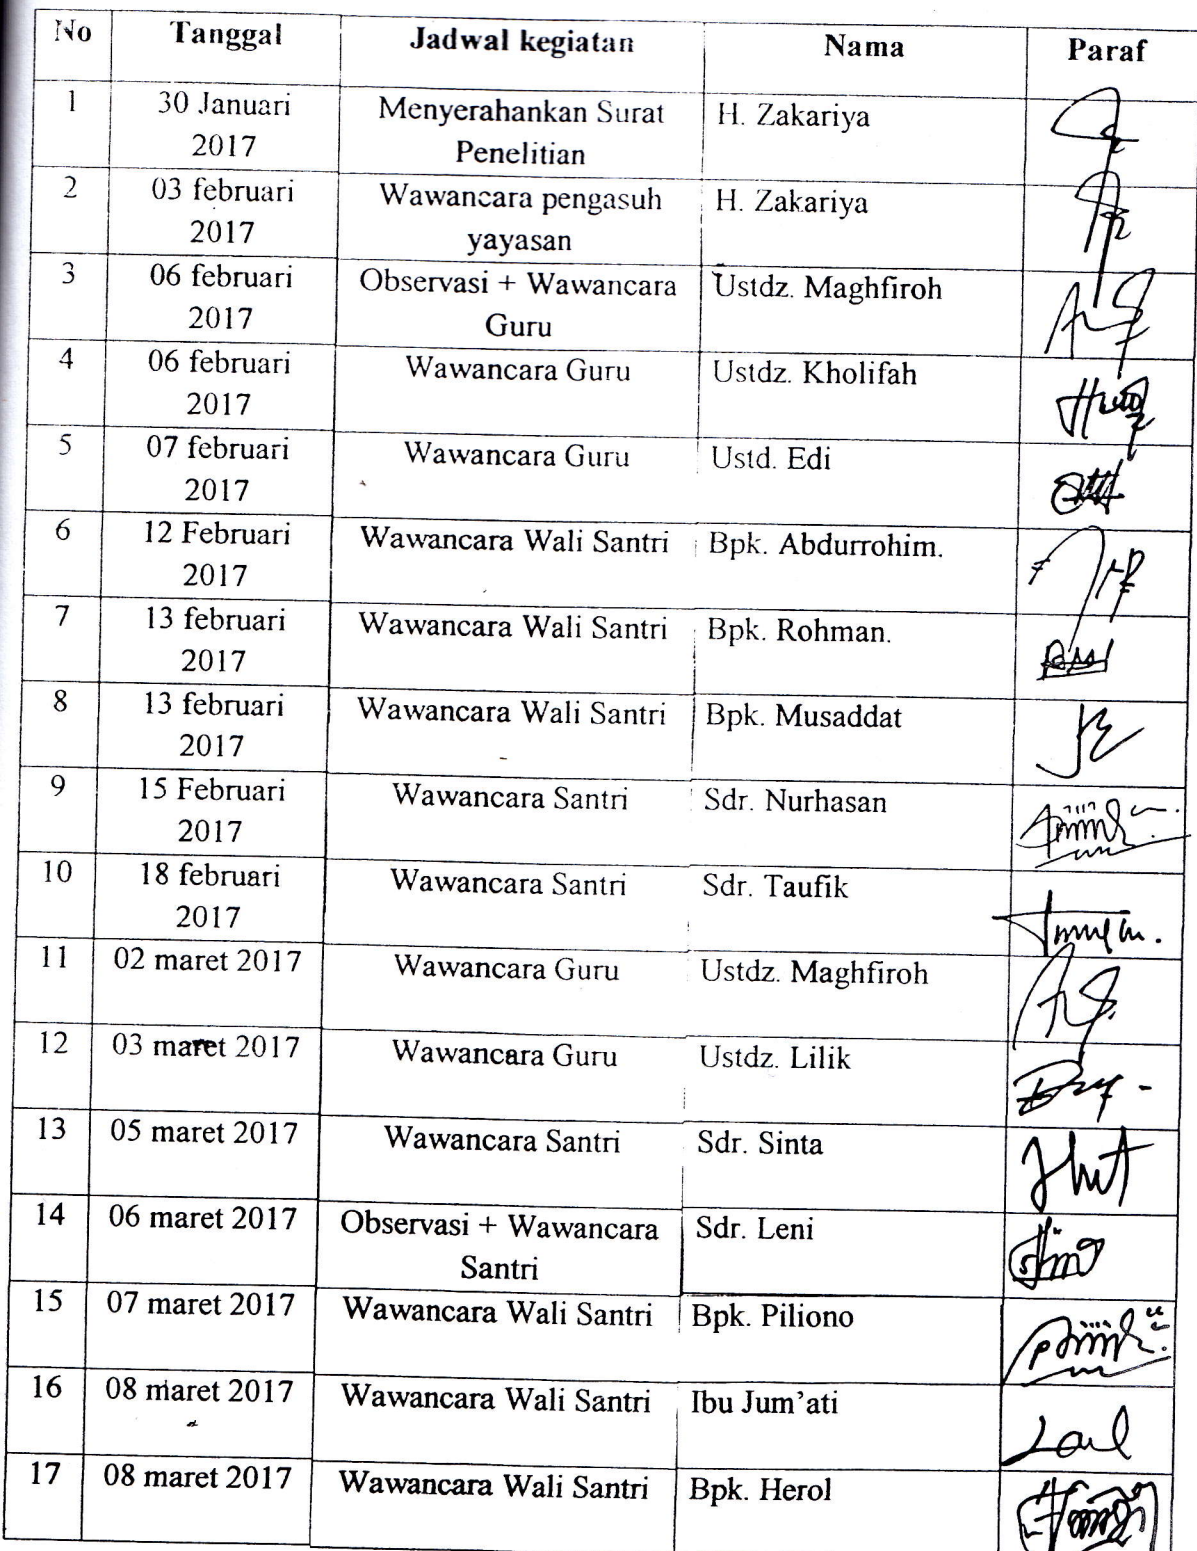 No Tanggal Jadwal kegiatan Nama Paraf
1 30 Januari Menyerahankan Surat H. Zakariya
2017 Penelitian
2 03 februari Wawancara pengasuh H. Zakariya
2017 yayasan
3 06 februari Observasi + Wawancara Ustdz. Maghfiroh
2017 Guru
4 06 februari Wawancara Guru Ustdz. Kholifah
2017
5 07 februari Wawancara Guru Ustd. Edi
2017
6 12 Februari Wawancara Wali Santri Bpk. Abdurrohim.
2017
7 13 februari Wawancara Wali Santri Bpk. Rohman.
2017
8 13 februari Wawancara Wali Santri Bpk. Musaddat
2017
9 15 Februari Wawancara Santri Sdr. Nurhasan
2017
10 18 februari Wawancara Santri Sdr. Taufik
2017
11 02 maret 2017 Wawancara Guru Ustdz. Maghfiroh
12 03 maret 2017 Wawancara Guru Ustdz. Lilik
13 05 maret 2017 Wawancara Santri Sdr. Sinta
14 06 maret 2017 Observasi + Wawancara Sdr. Leni
Santri
15 07 maret 2017 Wawancara Wali Santri Bpk. Piliono
16 08 maret 2017 Wawancara Wali Santri Ibu Jum’ati
17 08 maret 2017 Wawancara Wali Santri Bpk. Herol